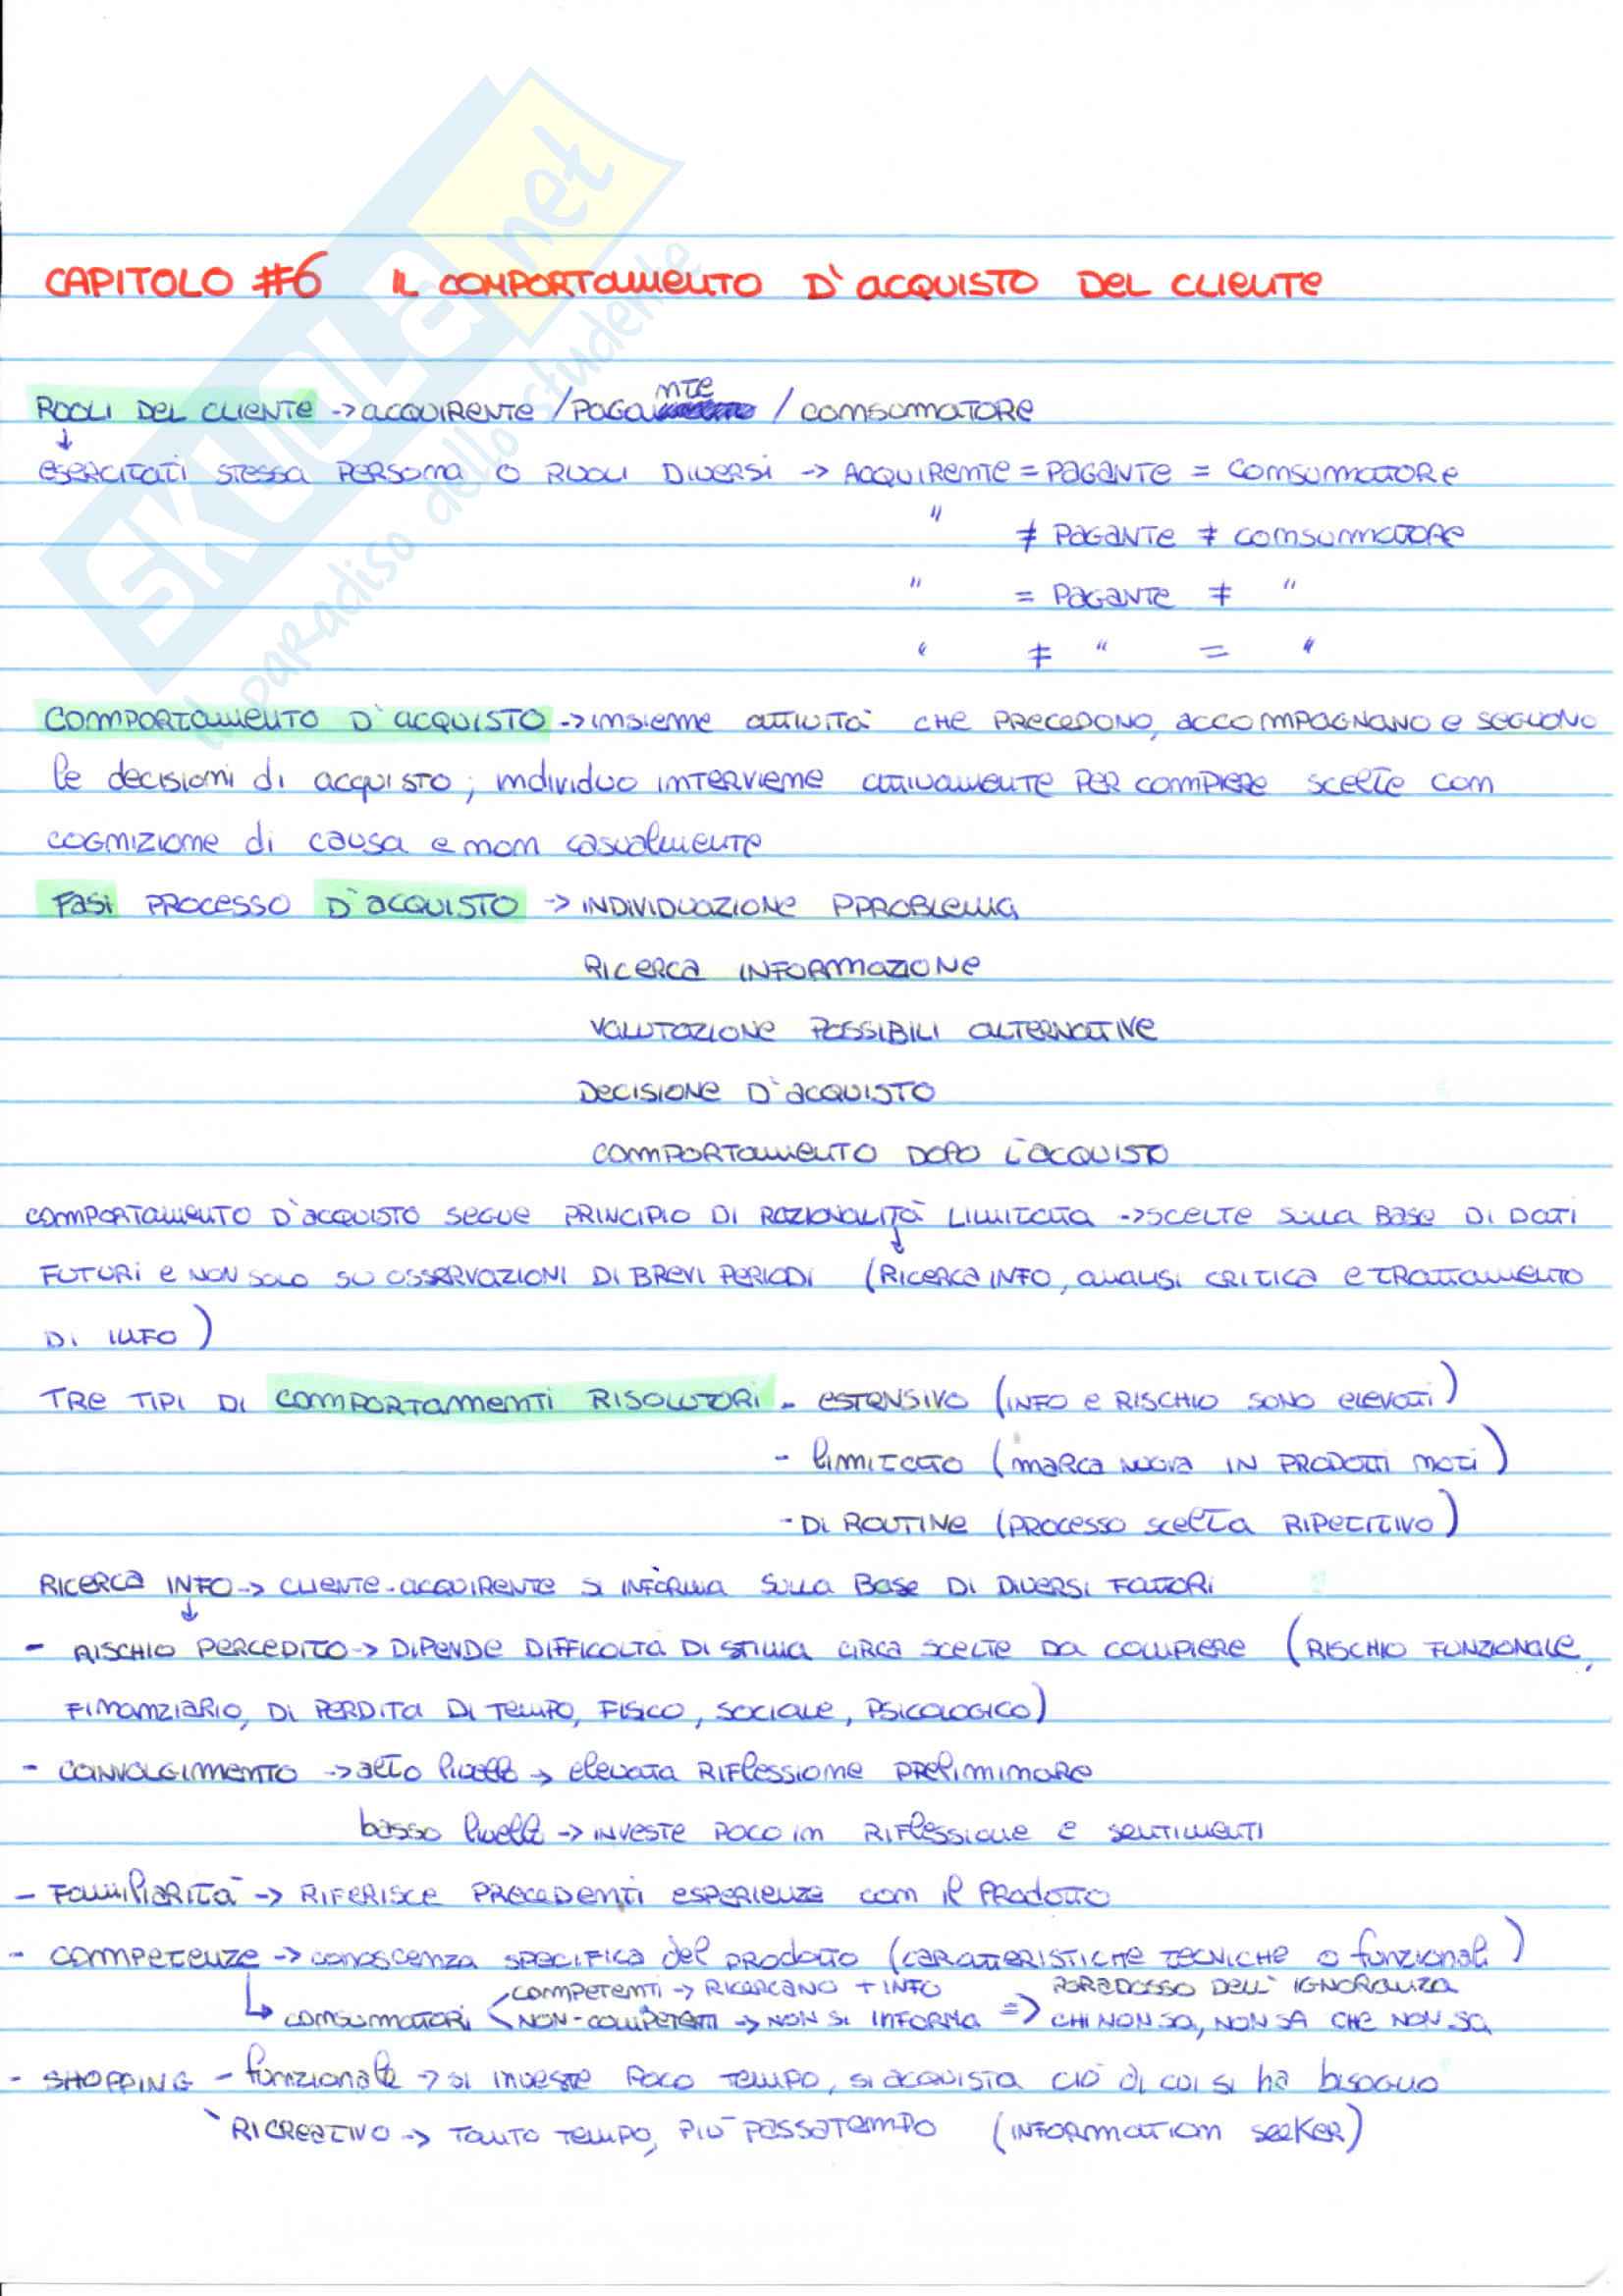 SKUOLA.net
il paradiso dello studente
CAPITOLO #6 IL COMPORTAMENTO D'ACQUISTO DEL CLIENTE
RUOLI DEL CLIENTE -> ACQUIRENTE / PAGANTE / CONSUMATORE
↓
ESERCITATI STESSA PERSONA O RUOLI DIVERSI -> ACQUIRENTE = PAGANTE = CONSUMATORE
" ≠ PAGANTE ≠ CONSUMATORE
" = PAGANTE ≠ "
" ≠ " = "
COMPORTAMENTO D'ACQUISTO -> INSIEME ATTIVITÀ CHE PRECEDONO, ACCOMPAGNANO E SEGUONO
le decisioni di acquisto; individuo INTERVIENE ATTIVAMENTE PER COMPIERE scelte con
COGNIZIONE di causa e non casualmente
FASI PROCESSO D'ACQUISTO -> INDIVIDUAZIONE PPROBLEMA
RICERCA INFORMAZIONE
VALUTAZIONE POSSIBILI ALTERNATIVE
DECISIONE D'ACQUISTO
COMPORTAMENTO DOPO L'ACQUISTO
COMPORTAMENTO D'ACQUISTO SEGUE PRINCIPIO DI RAZIONALITÀ LIMITATA -> SCELTE SULLA BASE DI DATI
↓
FUTURI E NON SOLO SU OSSERVAZIONI DI BREVI PERIODI (RICERCA INFO, ANALISI CRITICA E TRATTAMENTO
DI INFO)
TRE TIPI DI COMPORTAMENTI RISOLUTORI - ESTENSIVO (INFO E RISCHIO SONO ELEVATI)
- LIMITATO (MARCA NUOVA IN PRODOTTI NOTI)
- DI ROUTINE (PROCESSO SCELTA RIPETITIVO)
RICERCA INFO -> CLIENTE-ACQUIRENTE SI INFORMA SULLA BASE DI DIVERSI FATTORI
↓
- RISCHIO PERCEPITO -> DIPENDE DIFFICOLTÀ DI STIMA CIRCA SCELTE DA COMPIERE (RISCHIO FUNZIONALE,
FINANZIARIO, DI PERDITA DI TEMPO, FISICO, SOCIALE, PSICOLOGICO)
- COINVOLGIMENTO -> alto livello -> elevata RIFLESSIONE PRELIMINARE
basso livello -> INVESTE POCO IN RIFLESSIONE E SENTIMENTI
- FAMILIARITÀ -> RIFERISCE PRECEDENTI ESPERIENZE CON IL PRODOTTO
- COMPETENZE -> CONOSCENZA SPECIFICA DEL PRODOTTO (CARATTERISTICHE TECNICHE O funzionali)
COMPETENTI -> RICERCANO + INFO PARADOSSO DELL'IGNORANZA
↳ CONSUMATORI < NON-COMPETENTI -> NON SI INFORMA => CHI NON SA, NON SA CHE NON SA
- SHOPPING - funzionale -> SI INVESTE POCO TEMPO, SI ACQUISTA CIÒ DI CUI SI HA BISOGNO
RICREATIVO -> TANTO TEMPO, PIÙ PASSATEMPO (INFORMATION SEEKER)